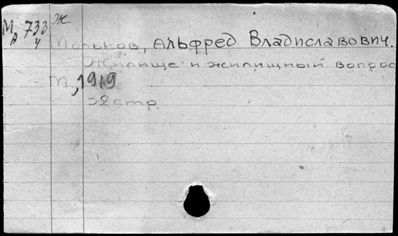 М 733 Ж
А 4
Мальков, Альфред Владиславович.
Жилище и жилищный вопрос
М, 1919
32 стр.